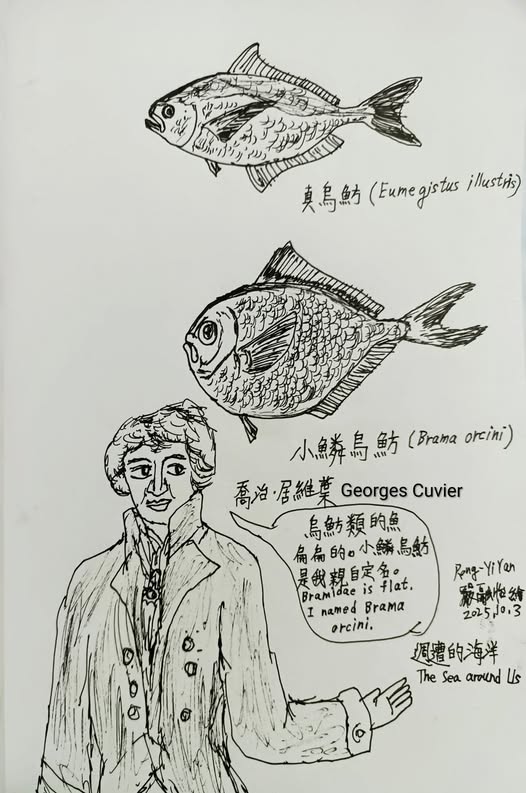 真烏魴 (Eumegistus illustris)
小鱗烏魴 (Brama orcini)
喬治·居維葉 Georges Cuvier
烏魴類的魚
扁扁的。小鱗烏魴
是我親自定名。
Bramidae is flat.
I named Brama
orcini.
Rong-Yi Yan
繪
2025.10.3
週遭的海洋
The Sea around Us